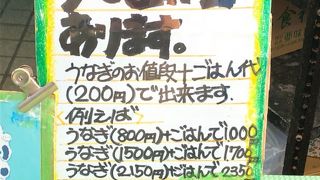 おります。
うなぎのお値段+ごはん代
(200円)で出来ます.
例えば
うなぎ(800円)+ごはんで1000円
うなぎ(1500円)+ごはんで1700円
うなぎ(2150円)+ごはんで2350